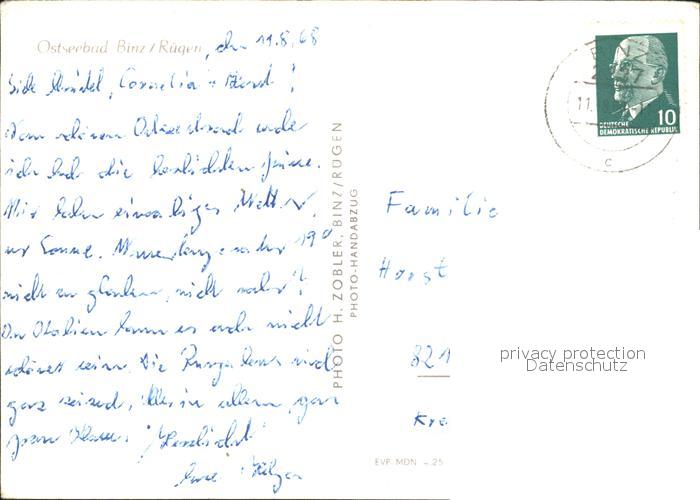 Ostseebad Binz/Rügen, den 11.8.68
Cornelia
Vom schönen Ostseestrand sende
ich Euch die herzlichsten Grüße.
Wir haben einmaliges Wetter,
nur Sonne. 19°
nicht zu glauben, nicht wahr?
In Italien kann es auch nicht
schöner sein. Die sind
ganz reizend, alles in allem, ganz
Herzlichst
Eure
PHOTO H. ZOBLER, BINZ/RÜGEN
PHOTO-HANDABZUG
10
DEUTSCHE
DEMOKRATISCHE REPUBLIK
11.
c
Familie
Horst
821
Kre
privacy protection
Datenschutz
EVP MDN -.25